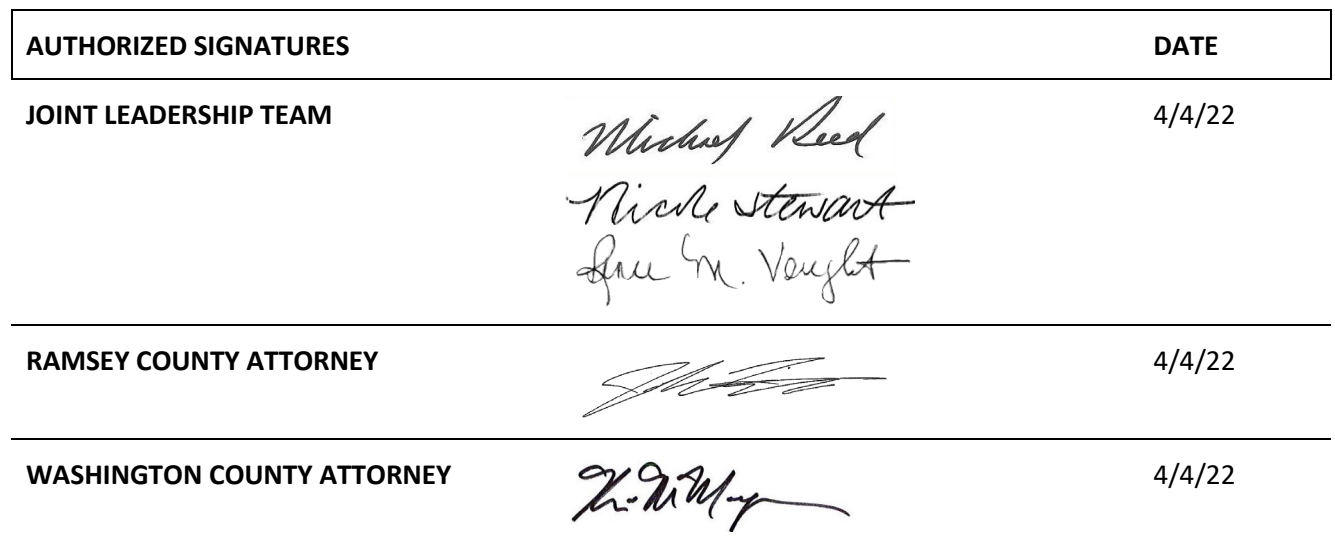 AUTHORIZED SIGNATURES DATE
JOINT LEADERSHIP TEAM Michael Reed 4/4/22
Nicole Stewart
M. Vaught
RAMSEY COUNTY ATTORNEY 4/4/22
WASHINGTON COUNTY ATTORNEY 4/4/22